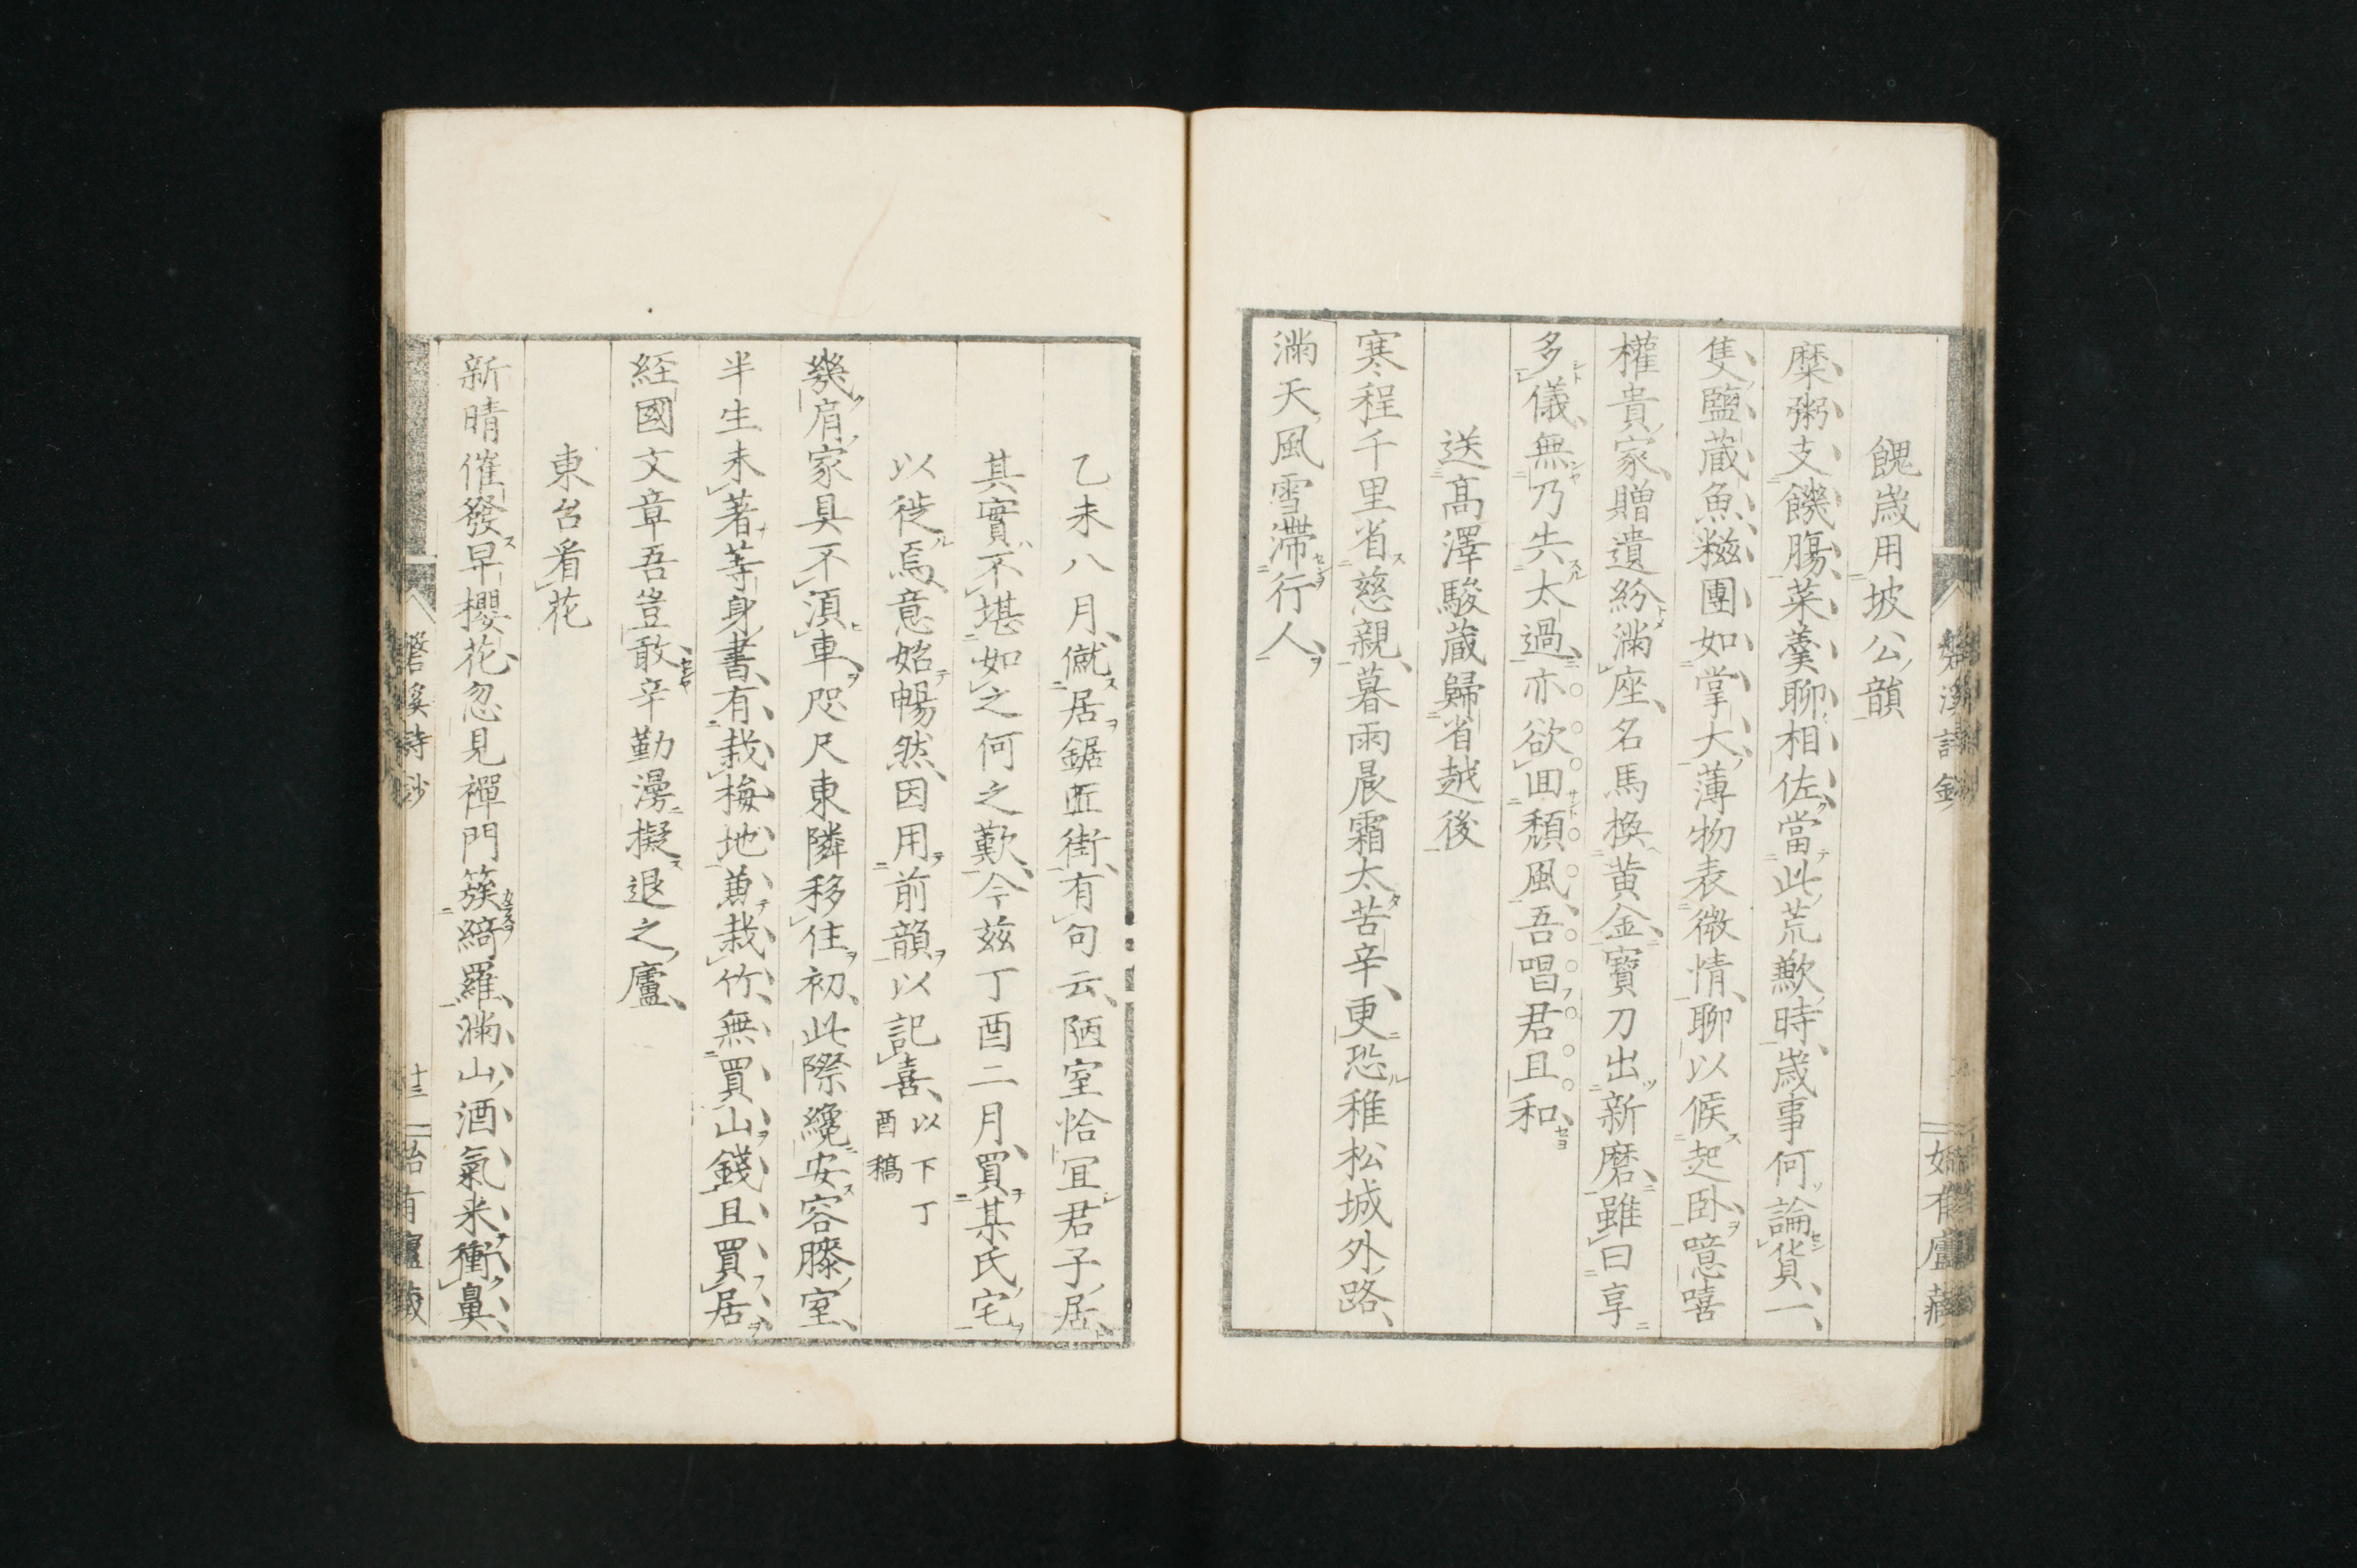 餽歲用坡公韻
糜粥支饑膓菜羹聊相佐當此荒歉時歲事何論貨一
隻鹽藏魚糍團如掌大薄物表微情聊以候起臥噫嘻
權貴家贈遺紛滿座名馬換黃金寶刀出新磨雖曰享
多儀無乃失太過亦欲回頽風吾唱君且和
送高澤駿藏歸省越後
寒程千里省慈親暮雨晨霜太苦辛更恐稚松城外路
滿天風雪滯行人
乙未八月僦居鋸匠街有句云陋室恰宜君子居
其實不堪如之何之歎今茲丁酉二月買某氏宅
以徙焉意始暢然因用前韻以記喜以下丁酉稿
幾肩家具不須車咫尺東隣移住初此際纔安容膝室
半生未著等身書有栽梅地兼栽竹無買山錢且買居
經國文章吾豈敢辛勤漫擬退之廬
東台看花
新晴催發早櫻花忽見禪門簇綺羅滿山酒氣來衝鼻
磐溪詩鈔 十三 始有廬藏